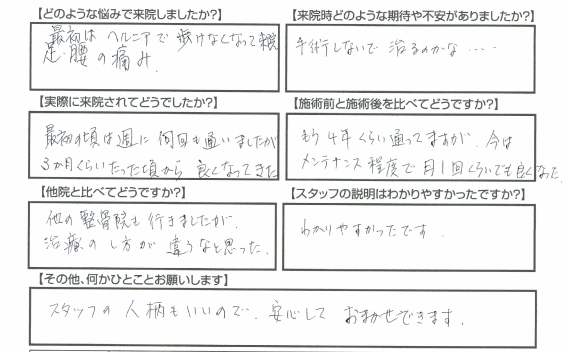 【どのような悩みで来院しましたか?】
最初は ヘルニアで 歩けなくなって来院
足・腰の痛み.
【来院時どのような期待や不安がありましたか?】
手術しないで 治るのかな・・・・
【実際に来院されてどうでしたか?】
最初の頃は週に 何回も通いましたが
3か月くらいたった頃から 良くなってきた
【施術前と施術後を比べてどうですか?】
もう4年くらい通ってますが、今は
メンテナンス程度で月1回くらいでも良くなった.
【他院と比べてどうですか?】
他の整骨院も行きましたが、
治療のし方が 違うなと思った.
【スタッフの説明はわかりやすかったですか?】
わかりやすかったです.
【その他、何かひとことお願いします】
スタッフの人柄もいいので、安心して おまかせできます.